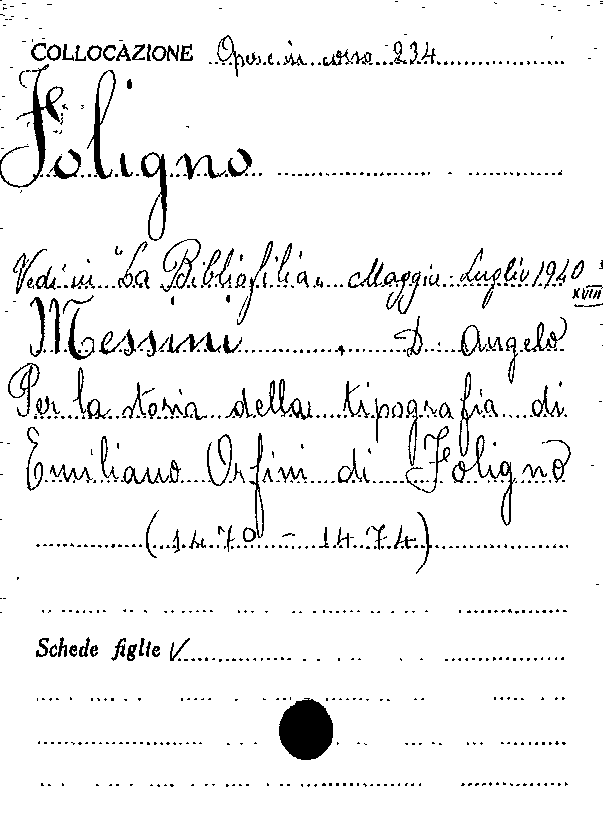 COLLOCAZIONE Opere in corso 234
Foligno
Vedi in "La Bibliofilia" Maggio-Luglio 1940
XVIII
Messini, D. Angelo
Per la storia della tipografia di
Emiliano Orfini di Foligno
(1470 - 1474)
Schede figlie V